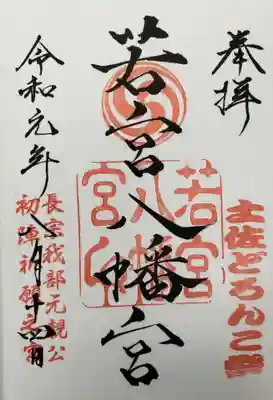 奉拝
土佐どろんこ祭
若宮八幡宮
若宮
八幡
宮印
令和元年八月十四日
長宗我部元親公
初陣祈願之宮